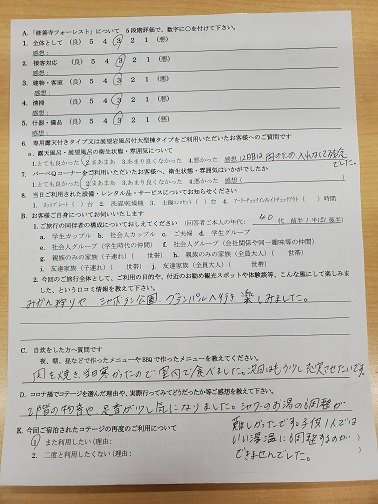 A.「修善寺フォーレスト」について 5段階評価で、数字に○を付けて下さい。
1. 全体として (良) 5 4 3 2 1 (悪)
感想:
2. 接客対応 (良) 5 4 3 2 1 (悪)
感想:
3. 建物・客室 (良) 5 4 3 2 1 (悪)
感想:
4. 清掃 (良) 5 4 3 2 1 (悪)
感想:
5. 什器・備品 (良) 5 4 3 2 1 (悪)
感想:
6. 専用露天付きタイプ又は展望岩風呂付大型棟タイプをご利用いただいたお客様へのご質問です
a. 露天風呂・展望風呂の衛生状態・雰囲気について
1.とても良かった 2.まあまあ 3.あまり良くなかった 4.悪かった 感想(2日目は 入れなくて残念でした。
7. バーベQコーナーをご利用いただいたお客様へ、衛生状態、雰囲気はいかがでしたか
1.とても良かった 2.まあまあ 3.あまり良くなかった 4.悪かった 感想( )
8. 当日ご利用された設備・レンタル品・サービスについてお知らせください
B. お客様ご自身についてお伺いいたします
1. ご旅行の同伴者の構成についておしえてください (回答者ご本人の年代: 40 代 前半 / 半ば / 後半)
a. 学生カップル b. 社会人カップル c. ご夫婦 d. 学生グループ
e. 社会人グループ(学生時代の仲間) f. 社会人グループ(会社関係や同一趣味等の仲間)
g. 親族のみの家族(子連れ)( 世帯) h. 親族のみの家族(全員大人)( 世帯)
i. 友達家族(子連れ)( 世帯) j. 友達家族(全員大人)( 世帯)
2. 今回のご旅行全体として、ご利用の目的や、付近のお勧め観光スポットや体験談等、こんな風にして楽しみました、というロコミ情報を教えて下さい。
みかん狩りや シャボテン公園、グランパルへ行き 楽しみました。
C. 自炊をした方へ質問です
夜、朝、昼などで作ったメニューやBBQで作ったメニューを教えてください。
肉を焼き、当日寒かったので室内で食べました。次回はもう少し充実させたいです。
D. コロナ禍でコテージを選んだ理由や、実際行ってみてどうだったか等ご感想を教えて下さい。
2階の物音や 足音が少し気になりました。シャワーのお湯の調整が
難しかったです。子供1人では
いい湯温に調整するのが
できませんでした。
E. 今回ご宿泊されたコテージの再度のご利用について
1. また利用したい(理由: )
2. 二度と利用したくない(理由: )